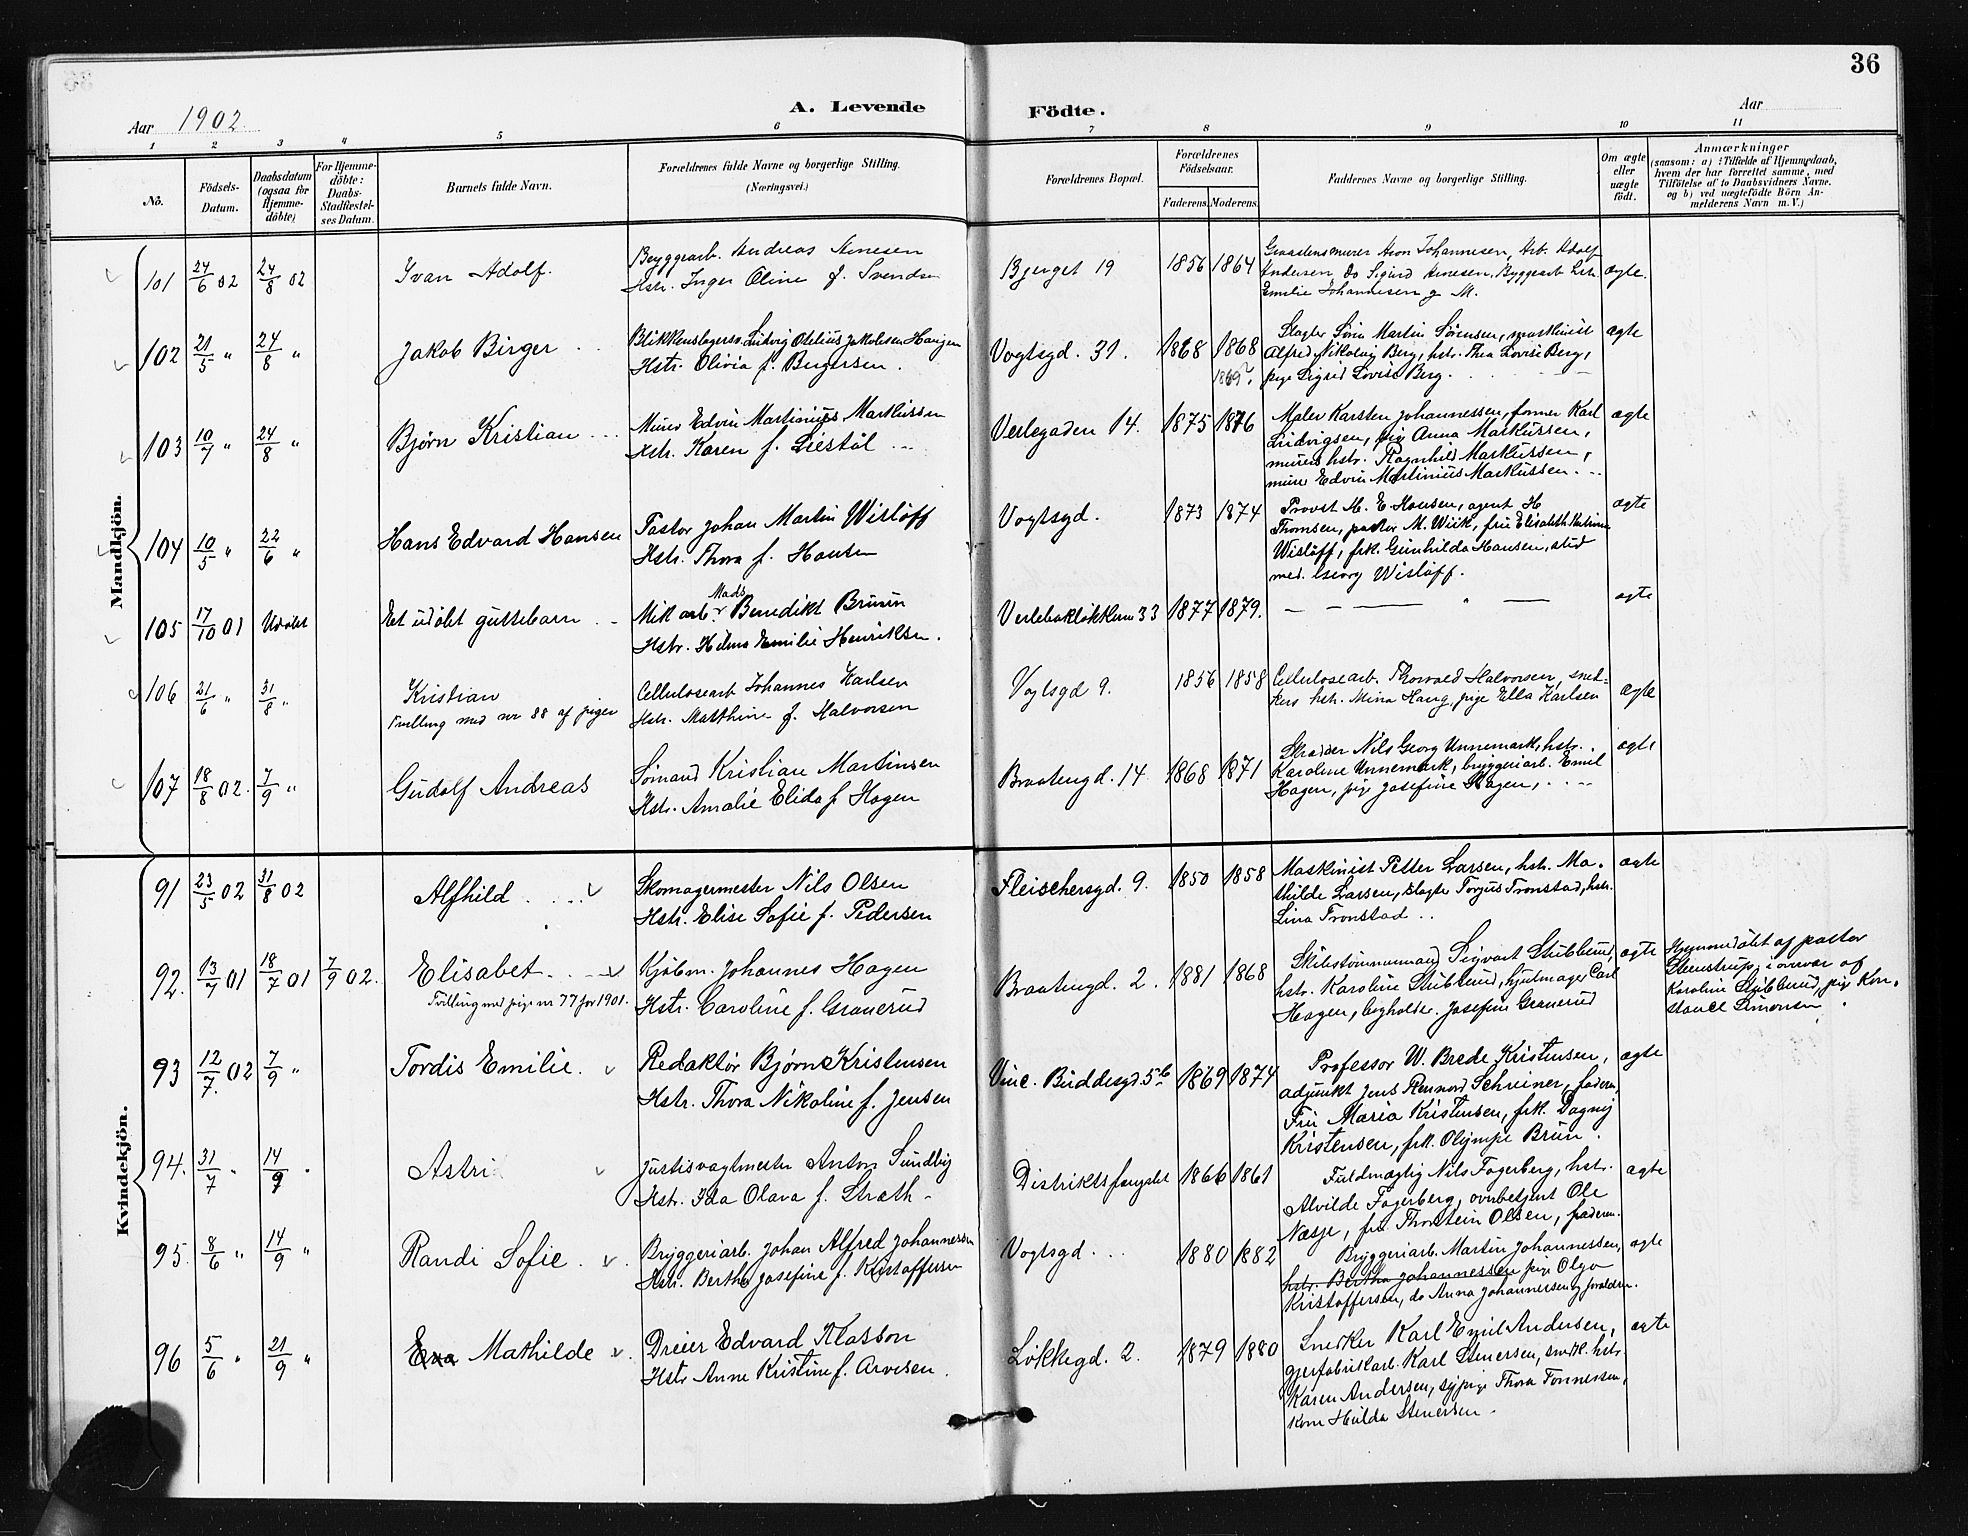 36
Aar 1902.
A. Levende Födte.
Aar
1 2 3 4 5 6 7 8 9 10 11
No.
Födsels-Datum.
Daabsdatum (ogsaa for Hjemme-döbte)
For Hjemme-döbte: Daabs-Stadfæstel-ses Datum.
Barnets fulde Navn.
Forældrenes fulde Navne og borgerlige Stilling. (Næringsvei.)
Forældrenes Bopæl.
Forældrenes Födselsaar.
Faderens. Moderens.
Faddernes Navne og borgerlige Stilling.
Om ægte eller uægte födt.
Anmærkninger
(saasom: a) i Tilfælde af Hjemmedaab,
hvem der har forrettet samme, med
Tilföielse af to Daabsvidners Navne.
og b) ved uægtefödte Börn An-
melderens Navn m. V.)
Mandkjön.
101 24/6 02 24/8 02 Ivan Adolf.
Byggearb. Andreas Arnesen
Hstr. Inger Oline f. Svendsen
Bjerget 19 1856 1864
Graastensmurer Aron Johannesen, Arb. Adolf
Andersen, do Sigurd Arnesen, Byggearb. hstr.
Emilie Johannesen og M.
ægte.
102 21/5 " 24/8 " Jakob Birger
Blikkenslagersv. Ludvig Otelius Jakobsen Haugen
Hstr. Olivia f. Birgersen.
Vogtsgd. 31. 1868 1868
1869?
Slagter Sörin Martin Sørensen, maskinist
Alfred Nikolai Berg, hstr. Thea Lovise Berg,
pige Sigrid Lovise Berg.
ægte
103 10/7 " 24/8 " Björn Kristian
Murer Edvin Martinius Markussen
Hstr. Karen f. Liestöl
Verlegaden 14. 1875 1876
Maler Karsten Johannessen, former Karl
Ludvigsen, pig Anna Markussen,
murers hstr. Ragnhild Markussen,
murer Edvin Martinius Markussen.
ægte
104 10/5 " 22/6 " Hans Edvard Hansen
Pastor Johan Martin Wislöff
Hstr. Thora f. Hansen
Vogtsgd. 1873 1874
Provst H. E Hansen, agent H
Thomsen, pastor M. Wiik, fru Elisabeth Katrine
Wislöff, frk. Gunhilda Hansen, stud
med. Georg Wislöff.
ægte
105 17/10 01 Udöbt Et udöbt guttebarn
Mek arb. Mads Benedikt Bruun
Hstr. Helma Emilie Henriksen.
Verlebakløkkerne 33 1877 1879.
— — — " —
ægte
106 21/6 " 31/8 " Kristian
Tvilling med nr 88 af piger
Cellulosearb Johannes Karlsen
Hstr. Matthine f. Halvorsen
Vogtsgd 9. 1856 1858
Cellulosearb. Thorvald Halvorsen, snek-
kers hstr. Mina Haug, pige Ella Karlsen
ægte
107 18/8 02. 7/9 " Gudolf Andreas
Sömand Kristian Martinsen
Hstr. Amalie Elida f. Hagen
Braatengd. 14 1868 1871
Skrædder Nils Georg Unnemark, hstr.
Karoline Unnemark, bryggeriarb. Emil
Hagen, pige Josefine Hagen,
ægte
Kvindekjön.
91 23/5 02 31/8 02 Alfhild
Skomagermester Nils Olsen
Hstr. Elise Sofie f. Pedersen
Fleischersgd. 9. 1850 1858
Maskinist Petter Larsen, hstr. Ma-
thilde Larsen, slagter Torgus Tronstad, hstr.
Lina Tronstad
ægte
92. 13/7 01 18/7 01 7/9 02. Elisabet.
Tvilling med pige nr 77 for 1901.
Kjöbm. Johannes Hagen
Hstr. Caroline f. Granerud
Braatengd. 2. 1881 1868
Skibstømmermand Sigvart Stubberud,
hstr. Karoline Stubberud, hjulmager Carl
Hagen, bogholder. Josefine Granerud
ægte
Hjemmedöbt af pastor
Steenstrup, i nærvær af
Karoline Stubberud, pige Kon-
stance Simonsen.
93 12/7. 02 7/9 " Tordis Emilie.
Redaktör Björn Kristensen
Hstr. Thora Nikoline f. Jensen
Vinc. Buddesgd. 5b 1869 1874
Professor W. Brede Kristensen,
adjunkt Jens Rennord Schreiner, faderen,
Fru Maria Kristensen, frk. Dagny
Kristensen, frk. Olympe Brun.
ægte
94. 31/7 " 14/9 " Astri
Justisvagtmester Anton Sundby
Hstr. Ida Olava f. Stræth-
Distriktsfængslet 1866 1861
Fuldmægtig Nils Fagerberg, hstr.
Alvilde Fagerberg, overbetjent Ole
Næsje, fru Thorstein Olsen, faderen.
ægte
95. 8/6 " 14/9 " Randi Sofie.
Bryggeriarb. Johan Alfred Johannessen
Hstr. Bertha Josefine f. Kristoffersen
Vogtsgd. 1880 1882
Bryggeriarb. Martin Johannessen,
hstr. Bertha Johannessen pige Olga
Kristoffersen, do Anna Johannessen og forældrene.
ægte
96 5/6 " 21/9 " Eva Mathilde
Dreier Edvard Klasson
Hstr Anne Kristine f. Arvesen.
Løkkegd. 2. 1879 1880
Snedker Karl Emil Andersen,
gjærfabrikarb. Karl Stenersen, snedk. hstr.
Karen Andersen, sypige Thora Tonnessen,
kone Hulda Stenersen.
ægte